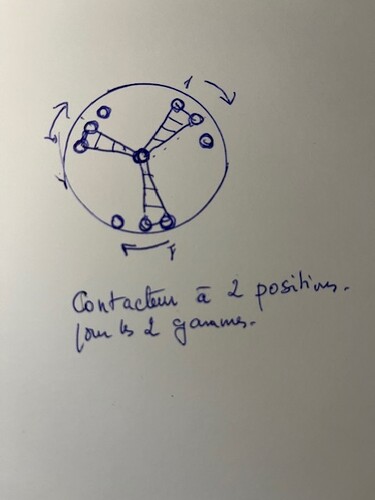 Contacteur à 2 positions.
pour les 2 gammes.